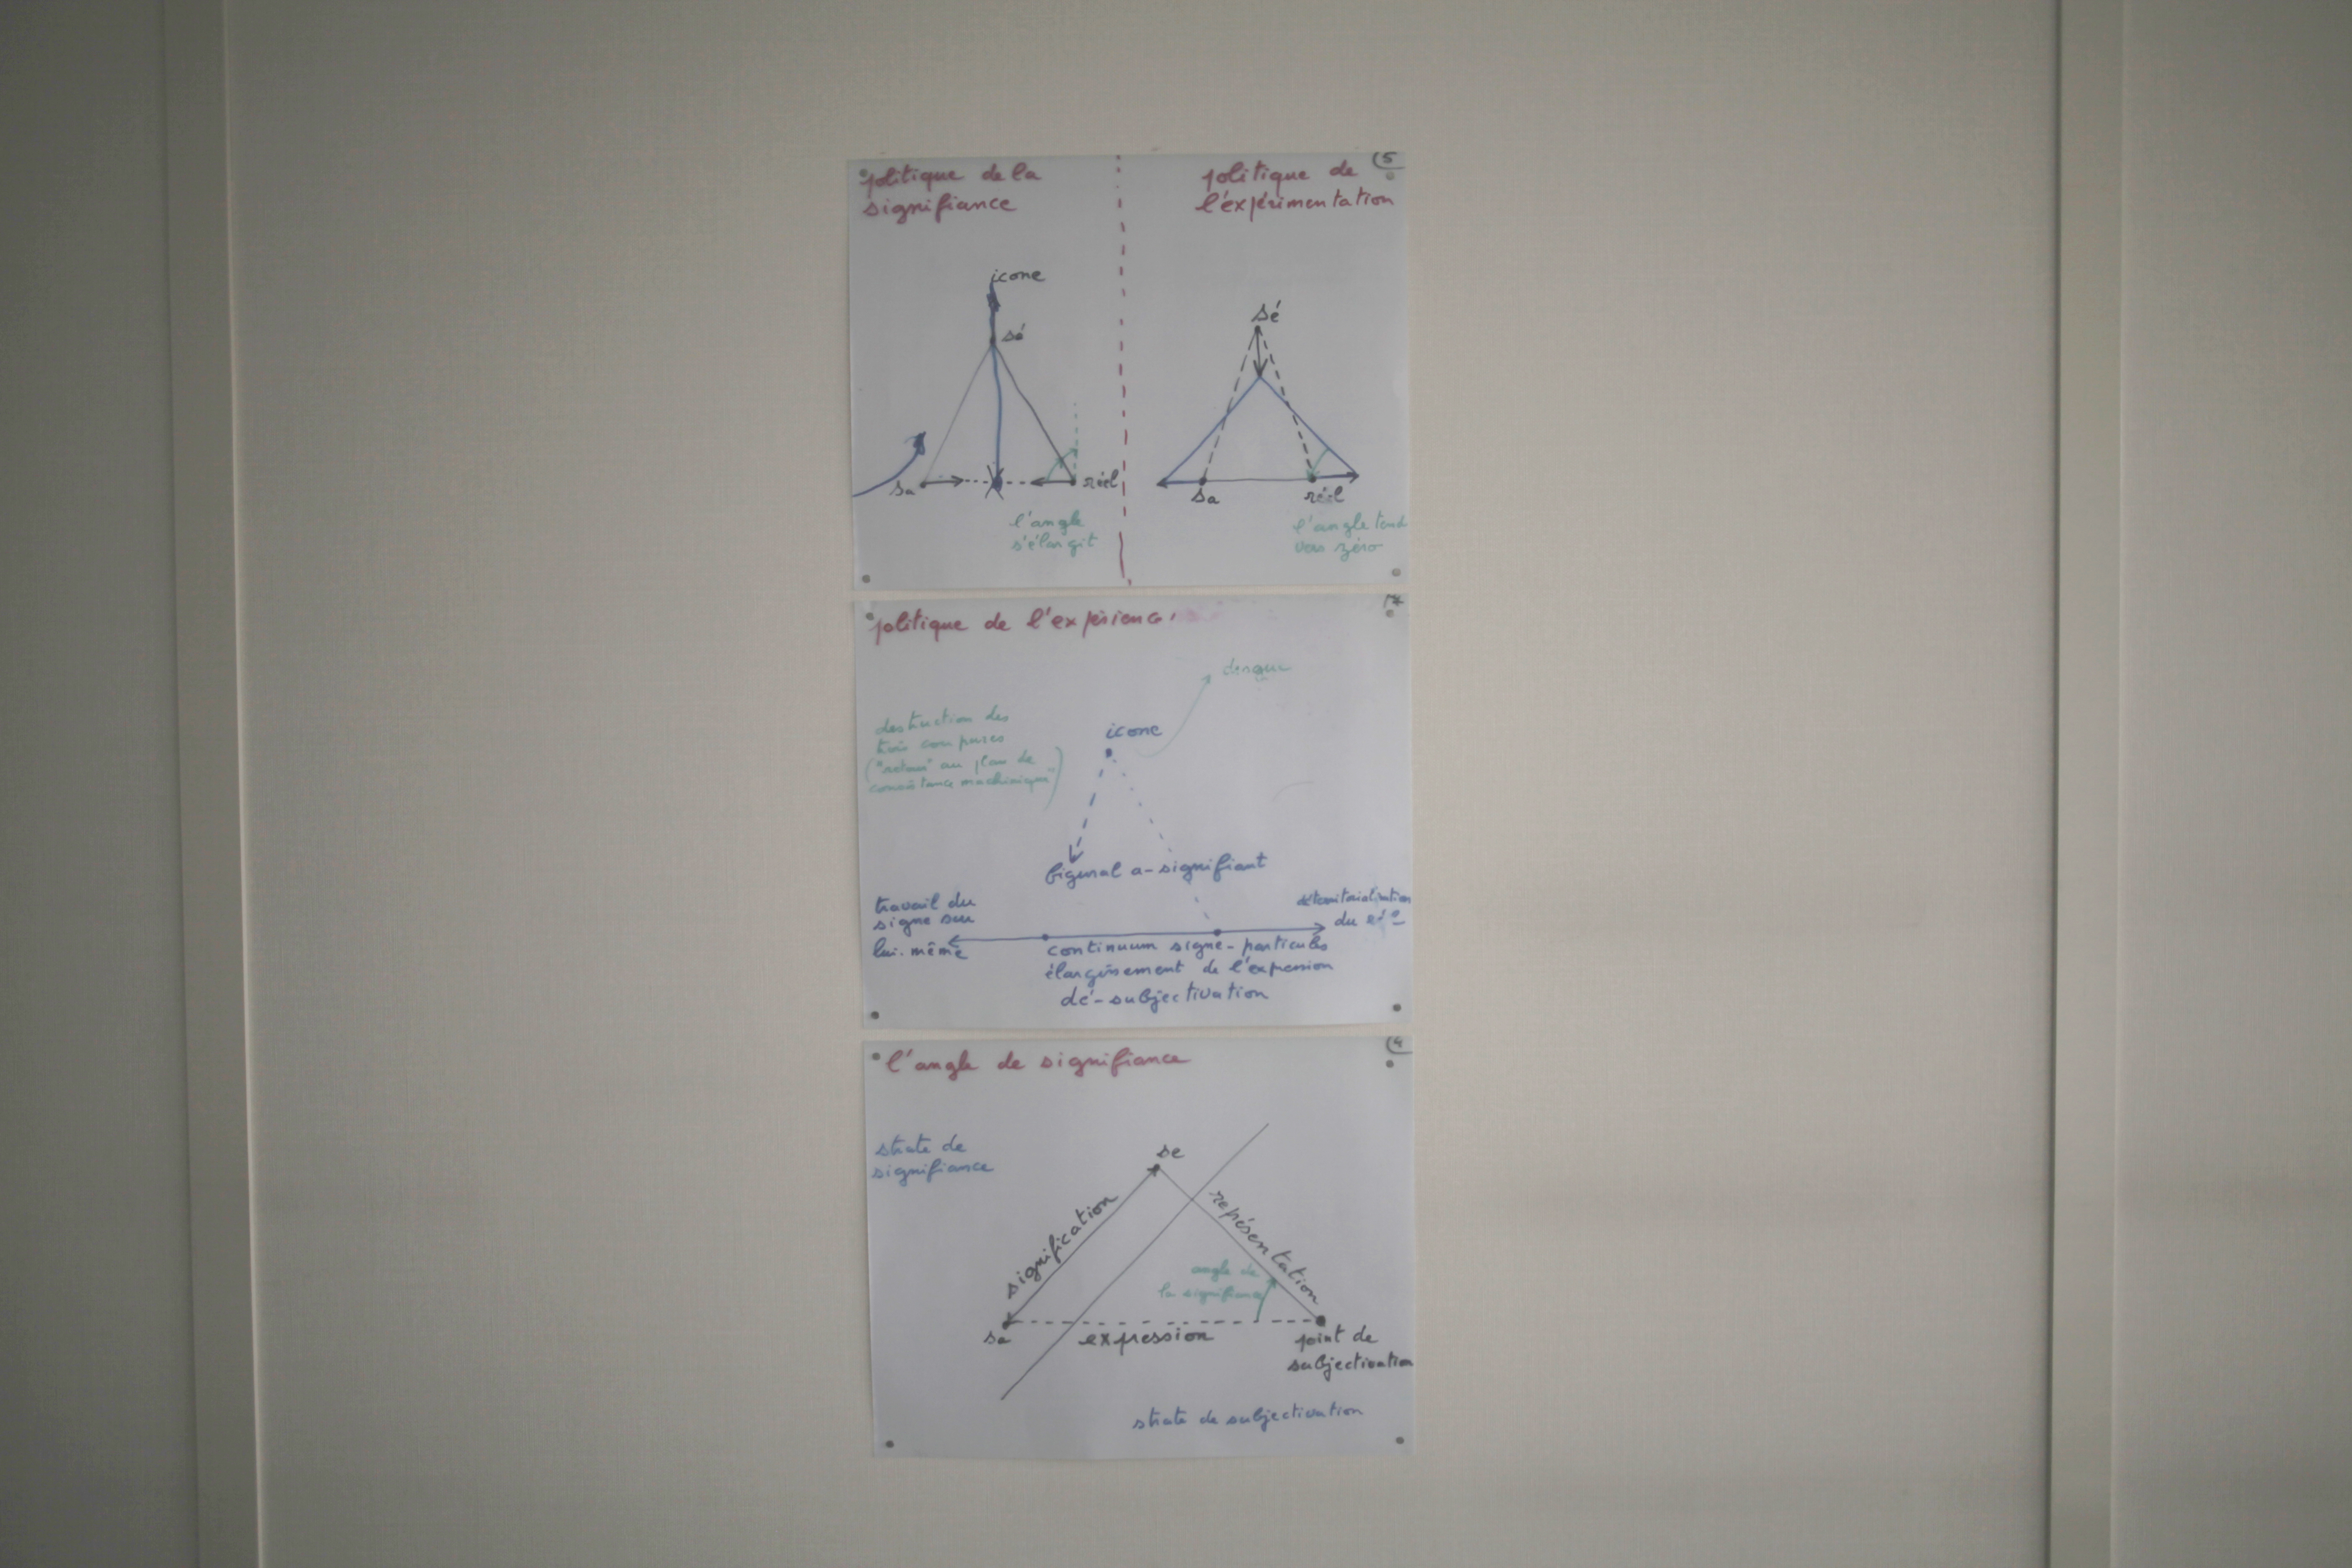 politique de la
signifiance
politique de
l'expérimentation
5
icone
sé
sa
réel
l'angle
s'élargit
sé
sa
réel
l'angle tend
vers zéro
politique de l'expérience
icone
destruction des
trois coupures
("retour" au plan de
consistance machinique")
figural a-signifiant
travail du
signe sur
lui-même
déterritorialisation
du
continuum signe-particules
élargissement de l'expression
dé-subjectivation
l'angle de signifiance
4
strate de
signifiance
se
signification
représentation
angle de
la signifiance
sa
expression
point de
subjectivation
strate de subjectivation